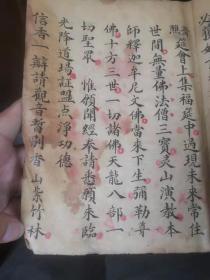 熊延會上集福延中過現未來常住
世間無量佛法僧三寶灵山演教本
師釋迦牟尼文佛當來下生彌勒尊
佛十方三世一切諸佛天龍八部一
切聖眾 惟願開經奉請悉願來臨
光降道塲証盟点淨功德
信香一瓣請觀音誓剎香山紫竹林